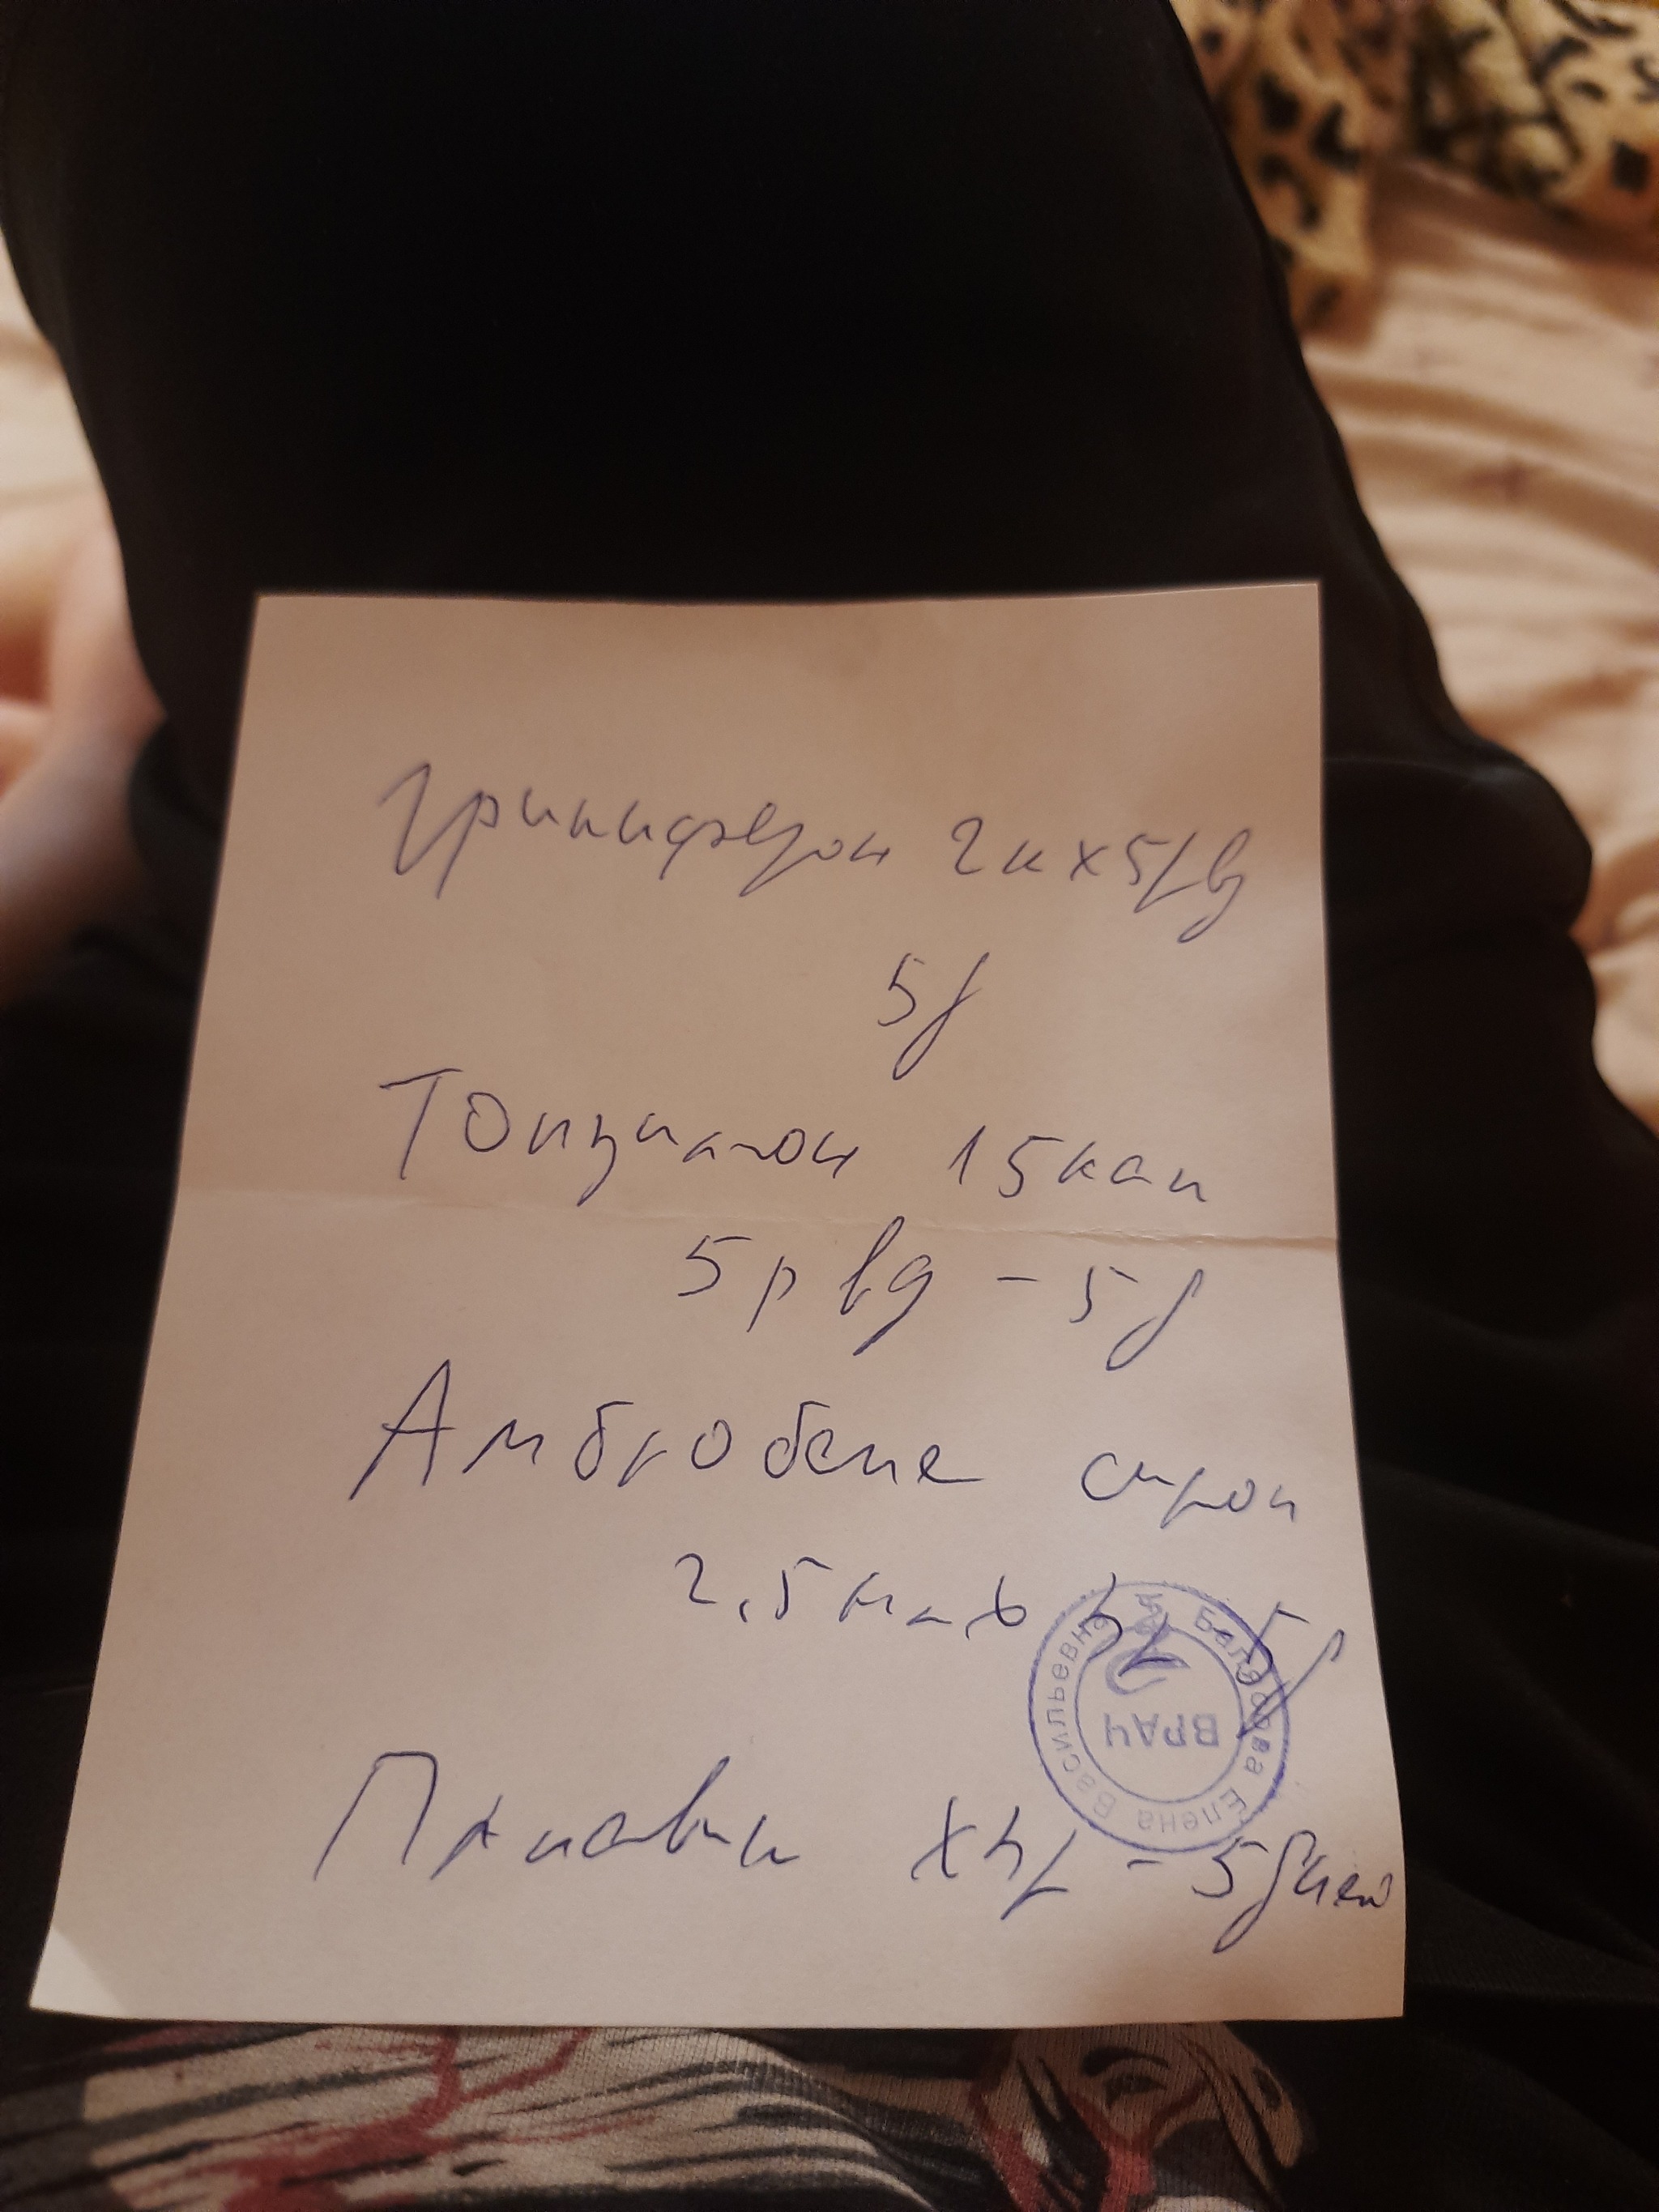 Гриппферон 2к х 5р/вд
5д
Тонзилгон 15 кап
5р вд - 5д
Амбробене сироп
2,5 мл х 3р 5д
Промывки х 3р - 5 дней
ВРАЧ
Елена Васильевна